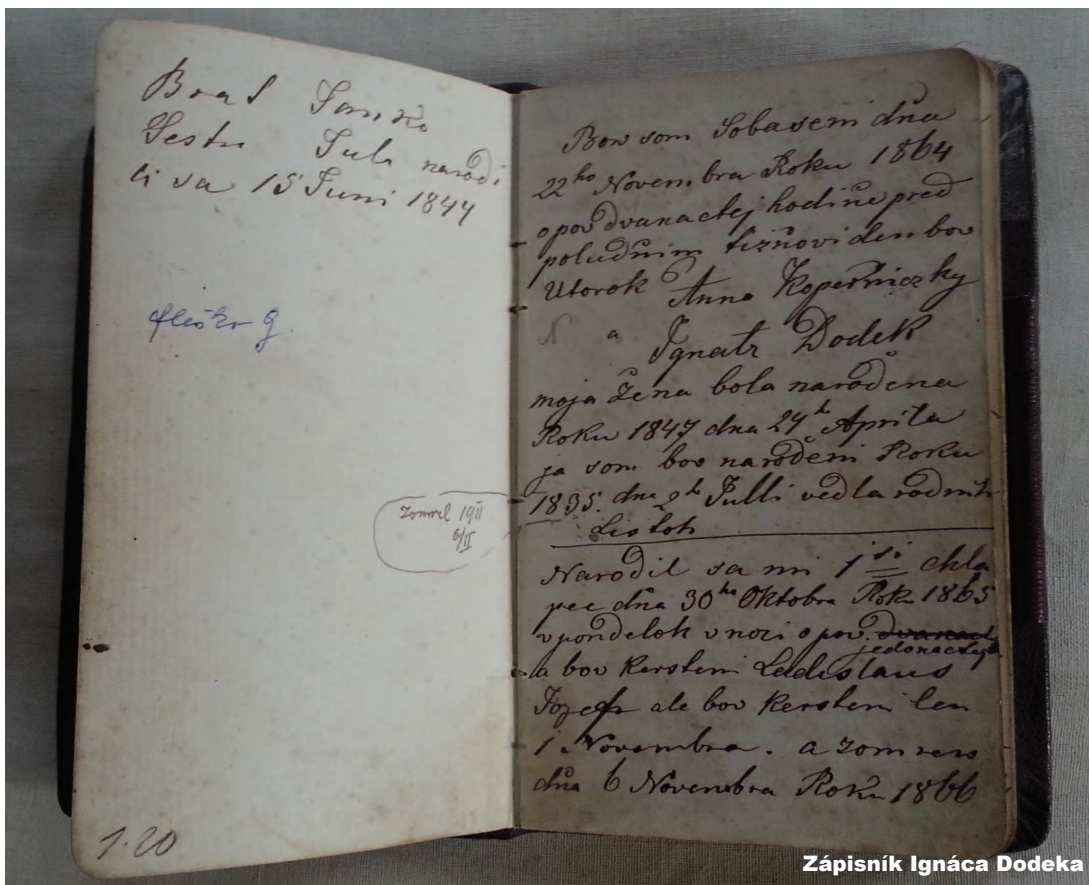 Brat Janko
Sestra Jula narodi
li sa 15 Juni 1844
Zomrel 1911
6/II
1·20
Bow som Sobaseni dňa
22ho Novembra Roku 1864
opow dvanactej hodiňe pred
poludňim tižňovi den bow
Utorok Anna Koperniczky
a
Ignatz Dodek
moja žena bola narodena
Roku 1847 dna 24h Aprila
ja som bow narodeni Roku
1835. dna 2ho Julli vedla rodnih
Listoh
Narodil sa mi 1si chla
pec dňa 30ho Oktobra Roku 1865
v pondelok v noci o pow. dvanact
jedonactej
a bow Kersteni Ladislaus
Jozef ale bow Kersteni len
1 Novembra. a zomrew
dňa 6 Novembra Roku 1866
Zápisník Ignáca Dodeka